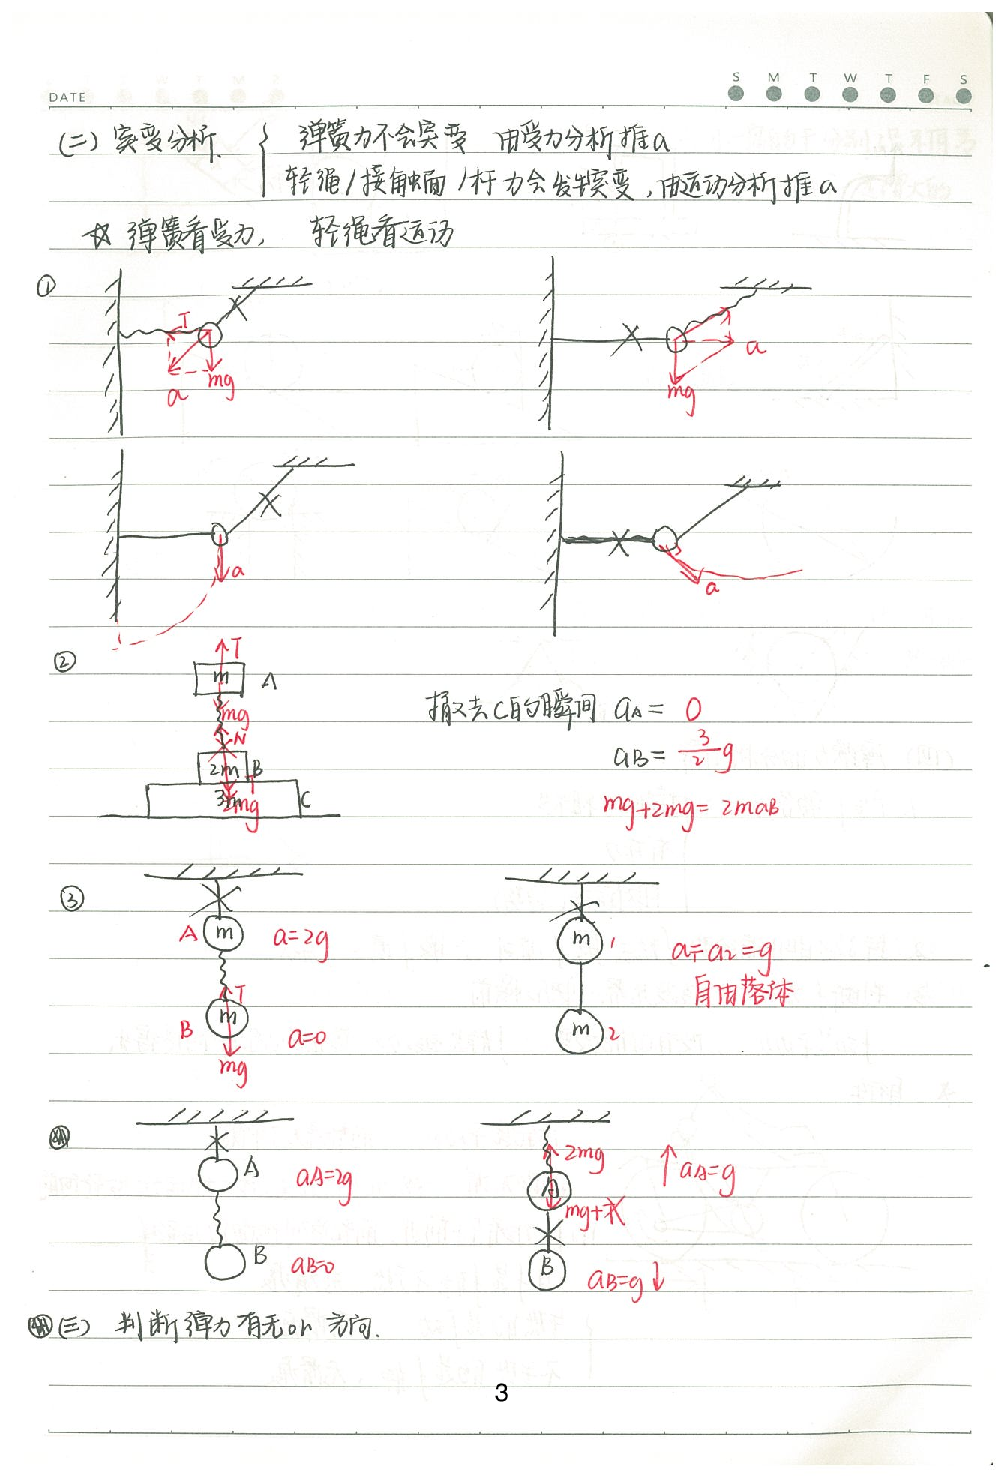 S M T W T F S
DATE
(二) 突变分析. { 弹簧力不会突变 由受力分析推a
轻绳/接触面/杆 力会发生突变, 由运动分析推a
☆ 弹簧看受力, 轻绳看运动
①
T
a mg
a
mg
a
a
②
T
m A
mg
N
2m B
3m C
2mg
撤去C的瞬间 aA = 0
aB = 3/2 g
mg+2mg = 2maB
③
A m a=2g
T
B m a=0
mg
m 1
a1=a2=g
自由落体
m 2
A aA=2g
B aB=0
2mg
A
mg+
↑aA=g
B aB=g↓
(三) 判断弹力有无or方向.
3